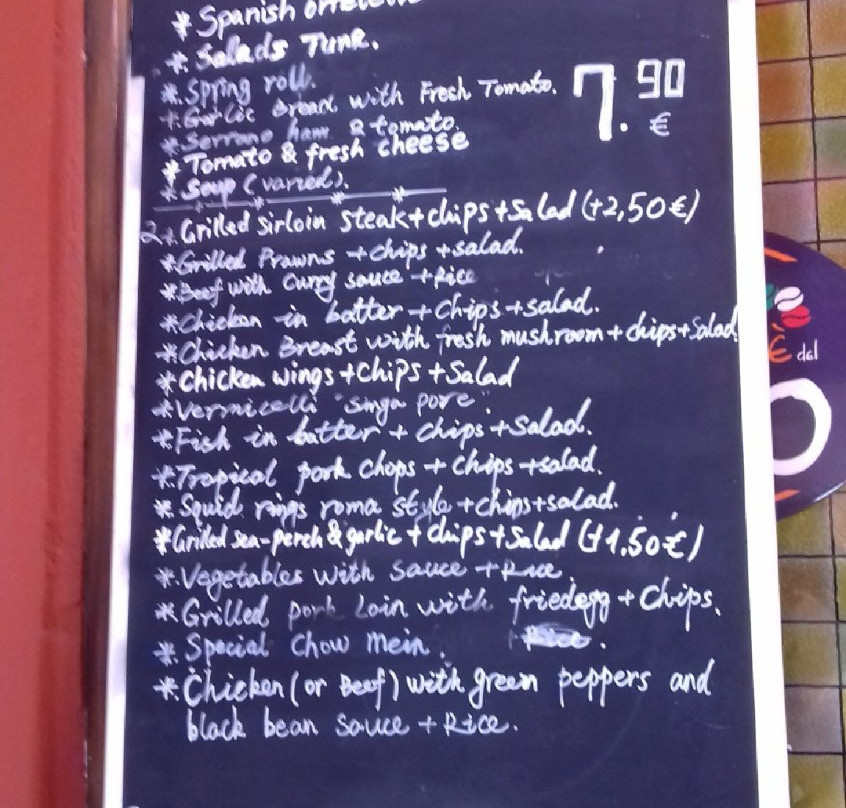 * Spanish
* Salads Tuna.
* Spring roll.
* Garlic Bread with Fresh Tomato.
7.90 €
* Serrano ham & tomato.
* Tomato & fresh cheese
* Soup (varied).
2. Grilled Sirloin steak+chips+salad (+2,50€)
* Grilled Prawns + chips + salad.
* Beef with Curry sauce + Rice
* Chicken in batter + Chips + salad.
* Chicken Breast with fresh mushroom + chips + Salad
* Chicken wings + Chips + Salad
* Vermicelli "Singa pore".
* Fish in batter + Chips + Salad.
* Tropical pork chops + Chips + salad.
* Squid rings roma style + chips + salad.
* Grilled sea-perch & garlic + chips + Salad (+1,50€)
* Vegetables with Sauce + Rice.
* Grilled pork Loin with friedegg + Chips.
* Special Chow Mein.
* Chicken (or Beef) with green peppers and
black bean Sauce + Rice.
€ del